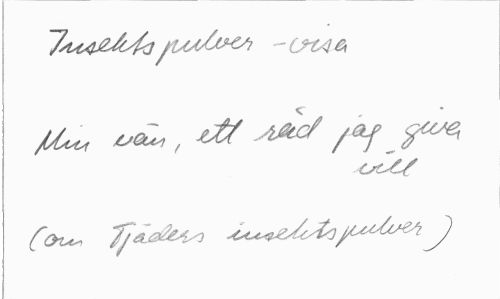 Insektspulver - visa
Min vän, ett råd jag giva
vill
(om Tjäders insektspulver)